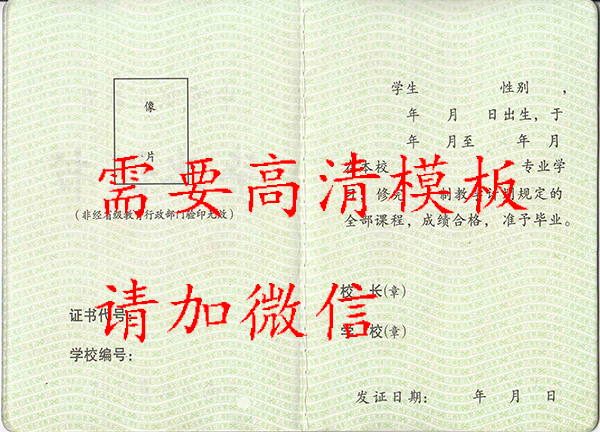 像
片
(非经省级教育行政部门验印无效)
证书代号:
学校编号:
学生 性别 ,
年 月 日出生,于
年 月至 年 月
在本校 专业学
制教学计划规定的
全部课程,成绩合格,准予毕业。
校 长(章)
学 校(章)
发证日期: 年 月 日
需要高清模板
请加微信